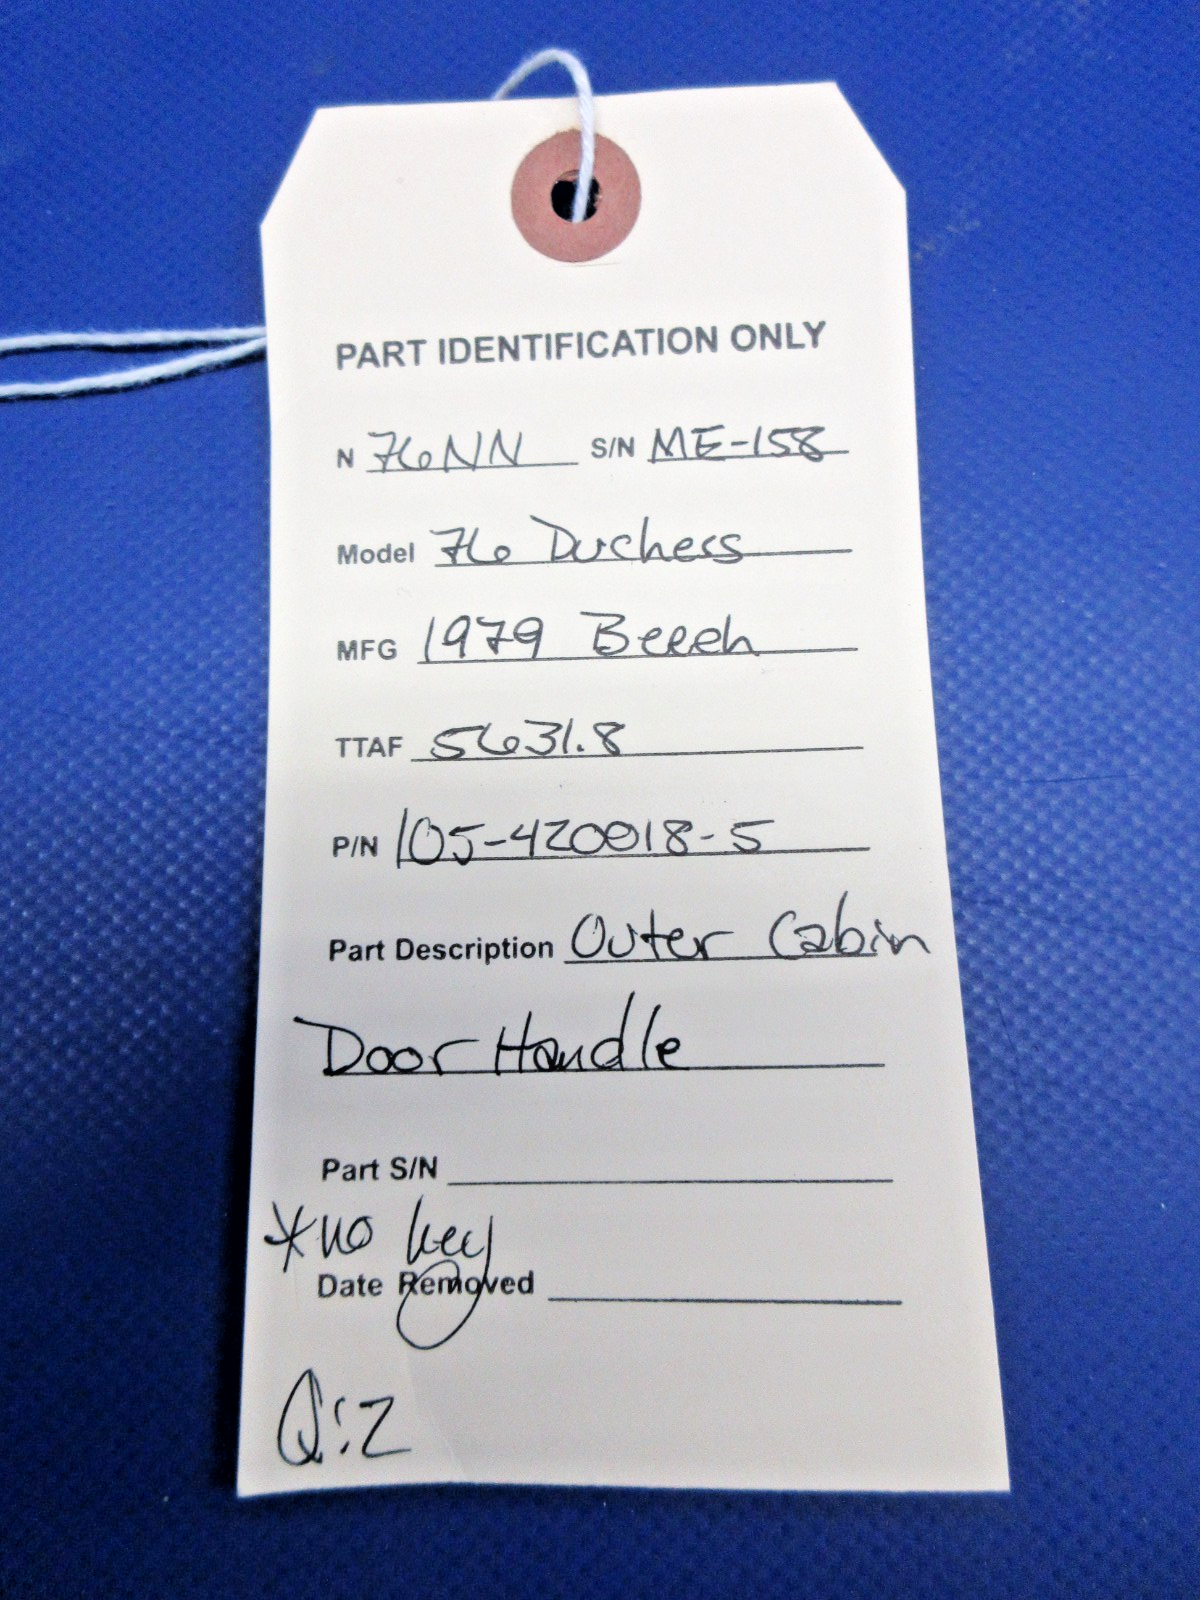 PART IDENTIFICATION ONLY
N 76NN S/N ME-158
Model 76 Duchess
MFG 1979 Beech
TTAF 5631.8
P/N 105-420018-5
Part Description Outer Cabin
Door Handle
Part S/N
*no key
Date Removed
Q:2